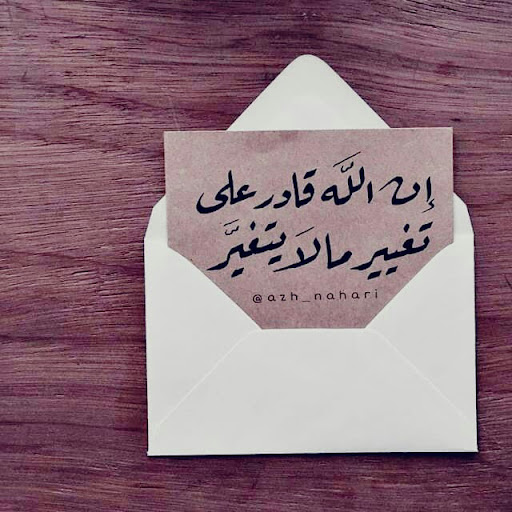 إن اللَّه قادر على
تغيير ما لاَ يتغيَّر
@azh_nahari